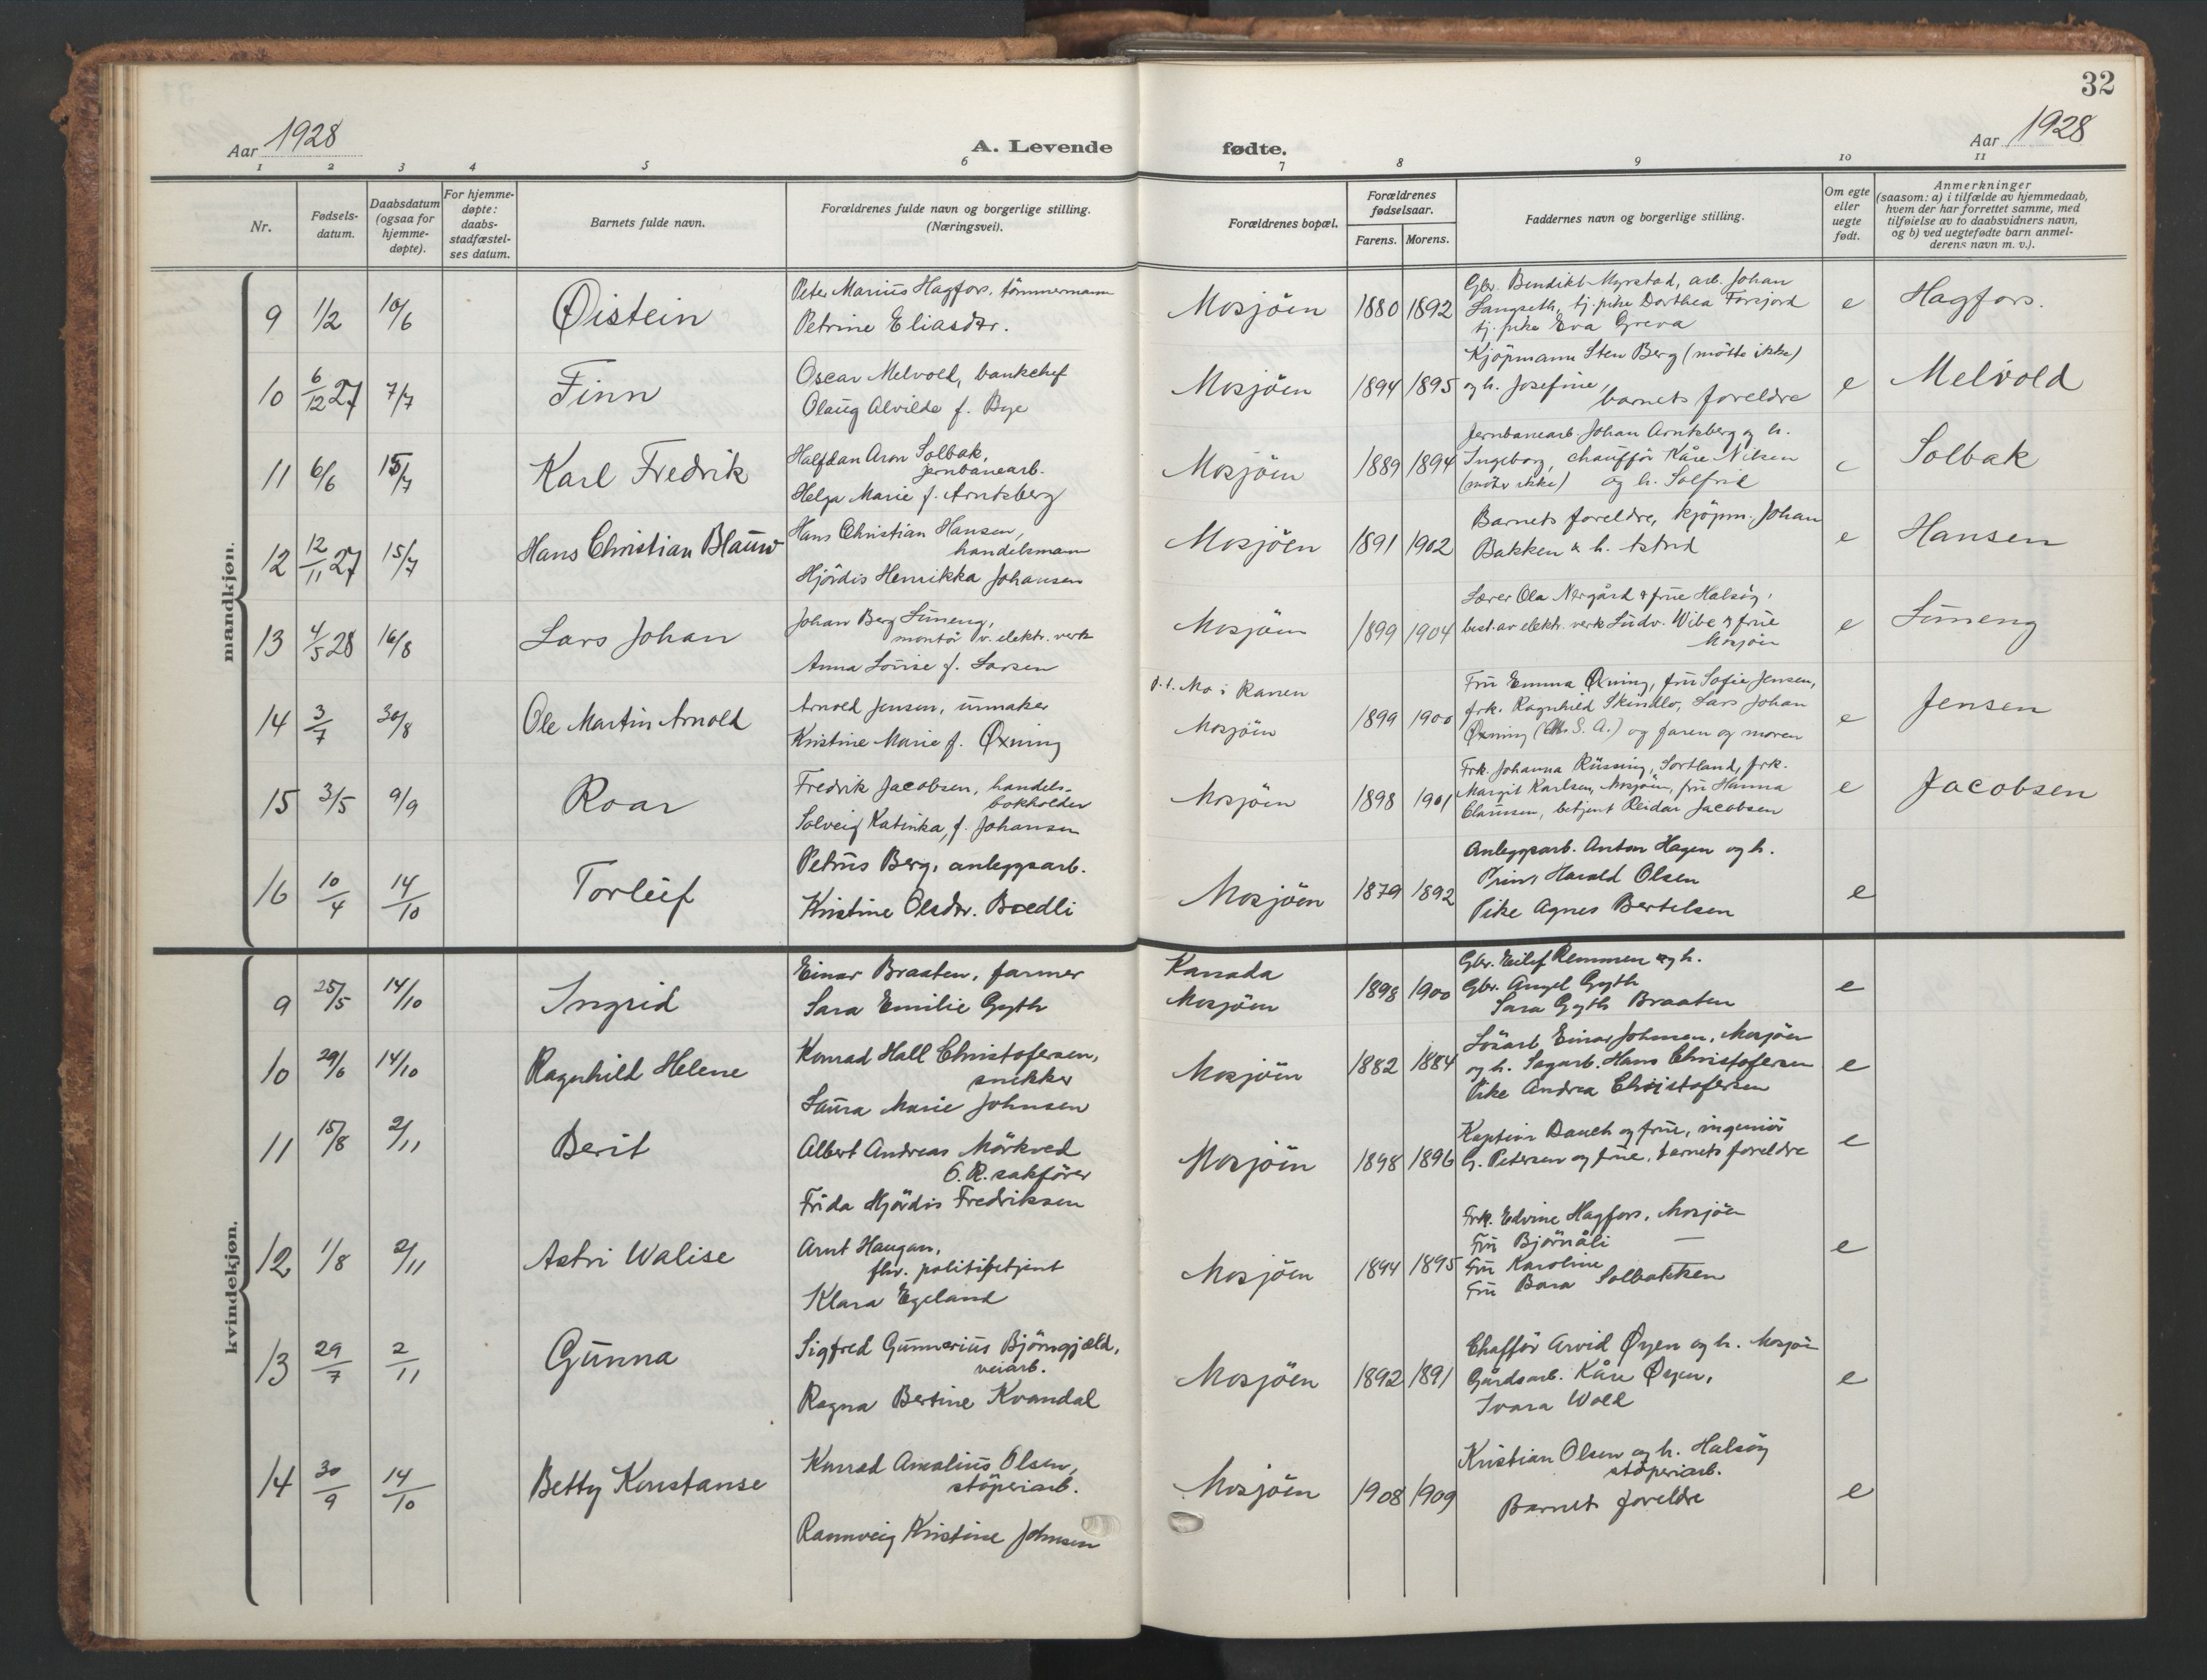 32
Aar 1928
A. Levende fødte.
Aar 1928
1 2 3 4 5 6 7 8 9 10 11
Nr.
Fødsels-
datum.
Daabsdatum
(ogsaa for
hjemme-
døpte).
For hjemme-
døpte:
daabs-
stadfæstel-
ses datum.
Barnets fulde navn.
Forældrenes fulde navn og borgerlige stilling.
(Næringsvei).
Forældrenes bopæl.
Forældrenes
fødselsaar.
Farens. Morens.
Faddernes navn og borgerlige stilling.
Om egte
eller
uegte
født.
Anmerkninger
(saasom: a) i tilfælde av hjemmedaab,
hvem der har forrettet samme, med
tilføielse av to daabsvidners navn,
og b) ved uegtefødte barn anmel-
derens navn m. v.).
mandkjøn.
9 1/2 10/6 Øistein
Peter Marius Hagfors, tömmermann
Petrine Eliasdtr.
Mosjöen 1880 1892
Gbr. Bendikt Myrstad, arb. Johan
Langseth, tj. pike Dorthea Forsjord
tj. pike Eva Greva
e Hagfors.
10 6/12 27 7/7 Finn
Oscar Melvold, bankchef
Olaug Alvilde f. Bye
Mosjöen 1894 1895
Kjöpmann Sten Berg (mötte ikke)
og h. Josefine,
barnets foreldre
e Melvold
11 6/6 15/7 Karl Fredrik
Halfdan Aron Solbak,
jernbanearb.
Helga Marie f. Arntsberg
Mosjöen 1889 1894
Jernbanearb. Johan Arntsberg og h.
Ingeborg, chaufför Kåre Nilsen
(möter ikke) og h. Solfrid
e Solbak
12 12/11 27 15/7 Hans Christian Blauw
Hans Christian Hansen,
handelsmann
Hjördis Henrikka Johansen
Mosjöen 1891 1902
Barnets foreldre, kjöpm. Johan
Bakken & h. Astrid
e Hansen
13 4/5 28 16/8 Lars Johan
Johan Berg Limeng,
montör v. elektr. verk
Anna Louise f. Larsen
Mosjöen 1899 1904
Lærer Ola Nergård & frue Halsöy,
best. av elektr. verk Ludv. Wibe & frue
Mosjöen
e Limeng
14 3/7 30/8 Ole Martin Arnold
Arnold Jensen, urmaker
Kristine Marie f. Øxning
p.t. Mo i Ranen
Mosjöen 1899 1900
Fru Emma Øxning, fru Sofie Jensen,
frk. Ragnhild Skindlo, Lars Johan
Øxning (U. S. A.) og faren og moren
e Jensen
15 3/5 9/9 Roar
Fredrik Jacobsen, handels-
bokholder
Solveig Katinka, f. Johansen
Mosjöen 1898 1901
Frk. Johanna Rüssing, Sortland, frk.
Margit Karlsen, Mosjöen, fru Hanna
Clausen, betjent Reidar Jacobsen
e Jacobsen
16 10/4 14/10 Torleif
Petrus Berg, anleggsarb.
Kristine Olsdtr. Bredli
Mosjöen 1879 1892
Anleggsarb. Anton Hagen og h.
Harald Olsen
Pike Agnes Bertelsen
e
kvindekjøn.
9 25/5 14/10 Ingrid
Einar Braaten, farmer
Sara Emilie Gyth
Kanada
Mosjöen 1898 1900
Gbr. Eilif Remmen og h.
Gbr. Angel Gyth
Sara Gyth Braaten
e
10 29/6 14/10 Ragnhild Helene
Konrad Hall Christofersen,
snekker
Laura Marie Johnsen
Mosjöen 1882 1884
Lösarb. Einar Johnsen, Mosjöen
og h. Sagarb. Hans Christofersen
Pike Andrea Christofersen
e
11 15/8 2/11 Berit
Albert Andreas Mörkved
O. R. sakförer
Frida Hjördis Fredriksen
Mosjöen 1898 1896
Kaptein Bauch og frue, ingeniör
G. Petersen og frue, barnets foreldre
e
12 1/8 2/11 Astri Walise
Arnt Haugan,
fhv. politibetjent
Klara Egeland
Mosjöen 1894 1895
Frk. Edvine Hagfors, Mosjöen
Fru Björnåli —
Fru Karoline
Fru Bara Solbakken
e
13 29/7 2/11 Gunna
Sigfred Gunnerius Björngjæld,
veiarb.
Ragna Bertine Kvandal
Mosjöen 1892 1891
Chafför Arvid Øyen og h. Mosjöen
Gårdsarb. Kåre Øyen,
Ivara Wold
e
14 30/9 14/10 Betty Konstanse
Konrad Amalius Olsen,
stöperiarb.
Rannveig Kristine Johnsen
Mosjöen 1908 1909
Kristian Olsen og h. Halsöy
stöperiarb.
Barnets foreldre
e